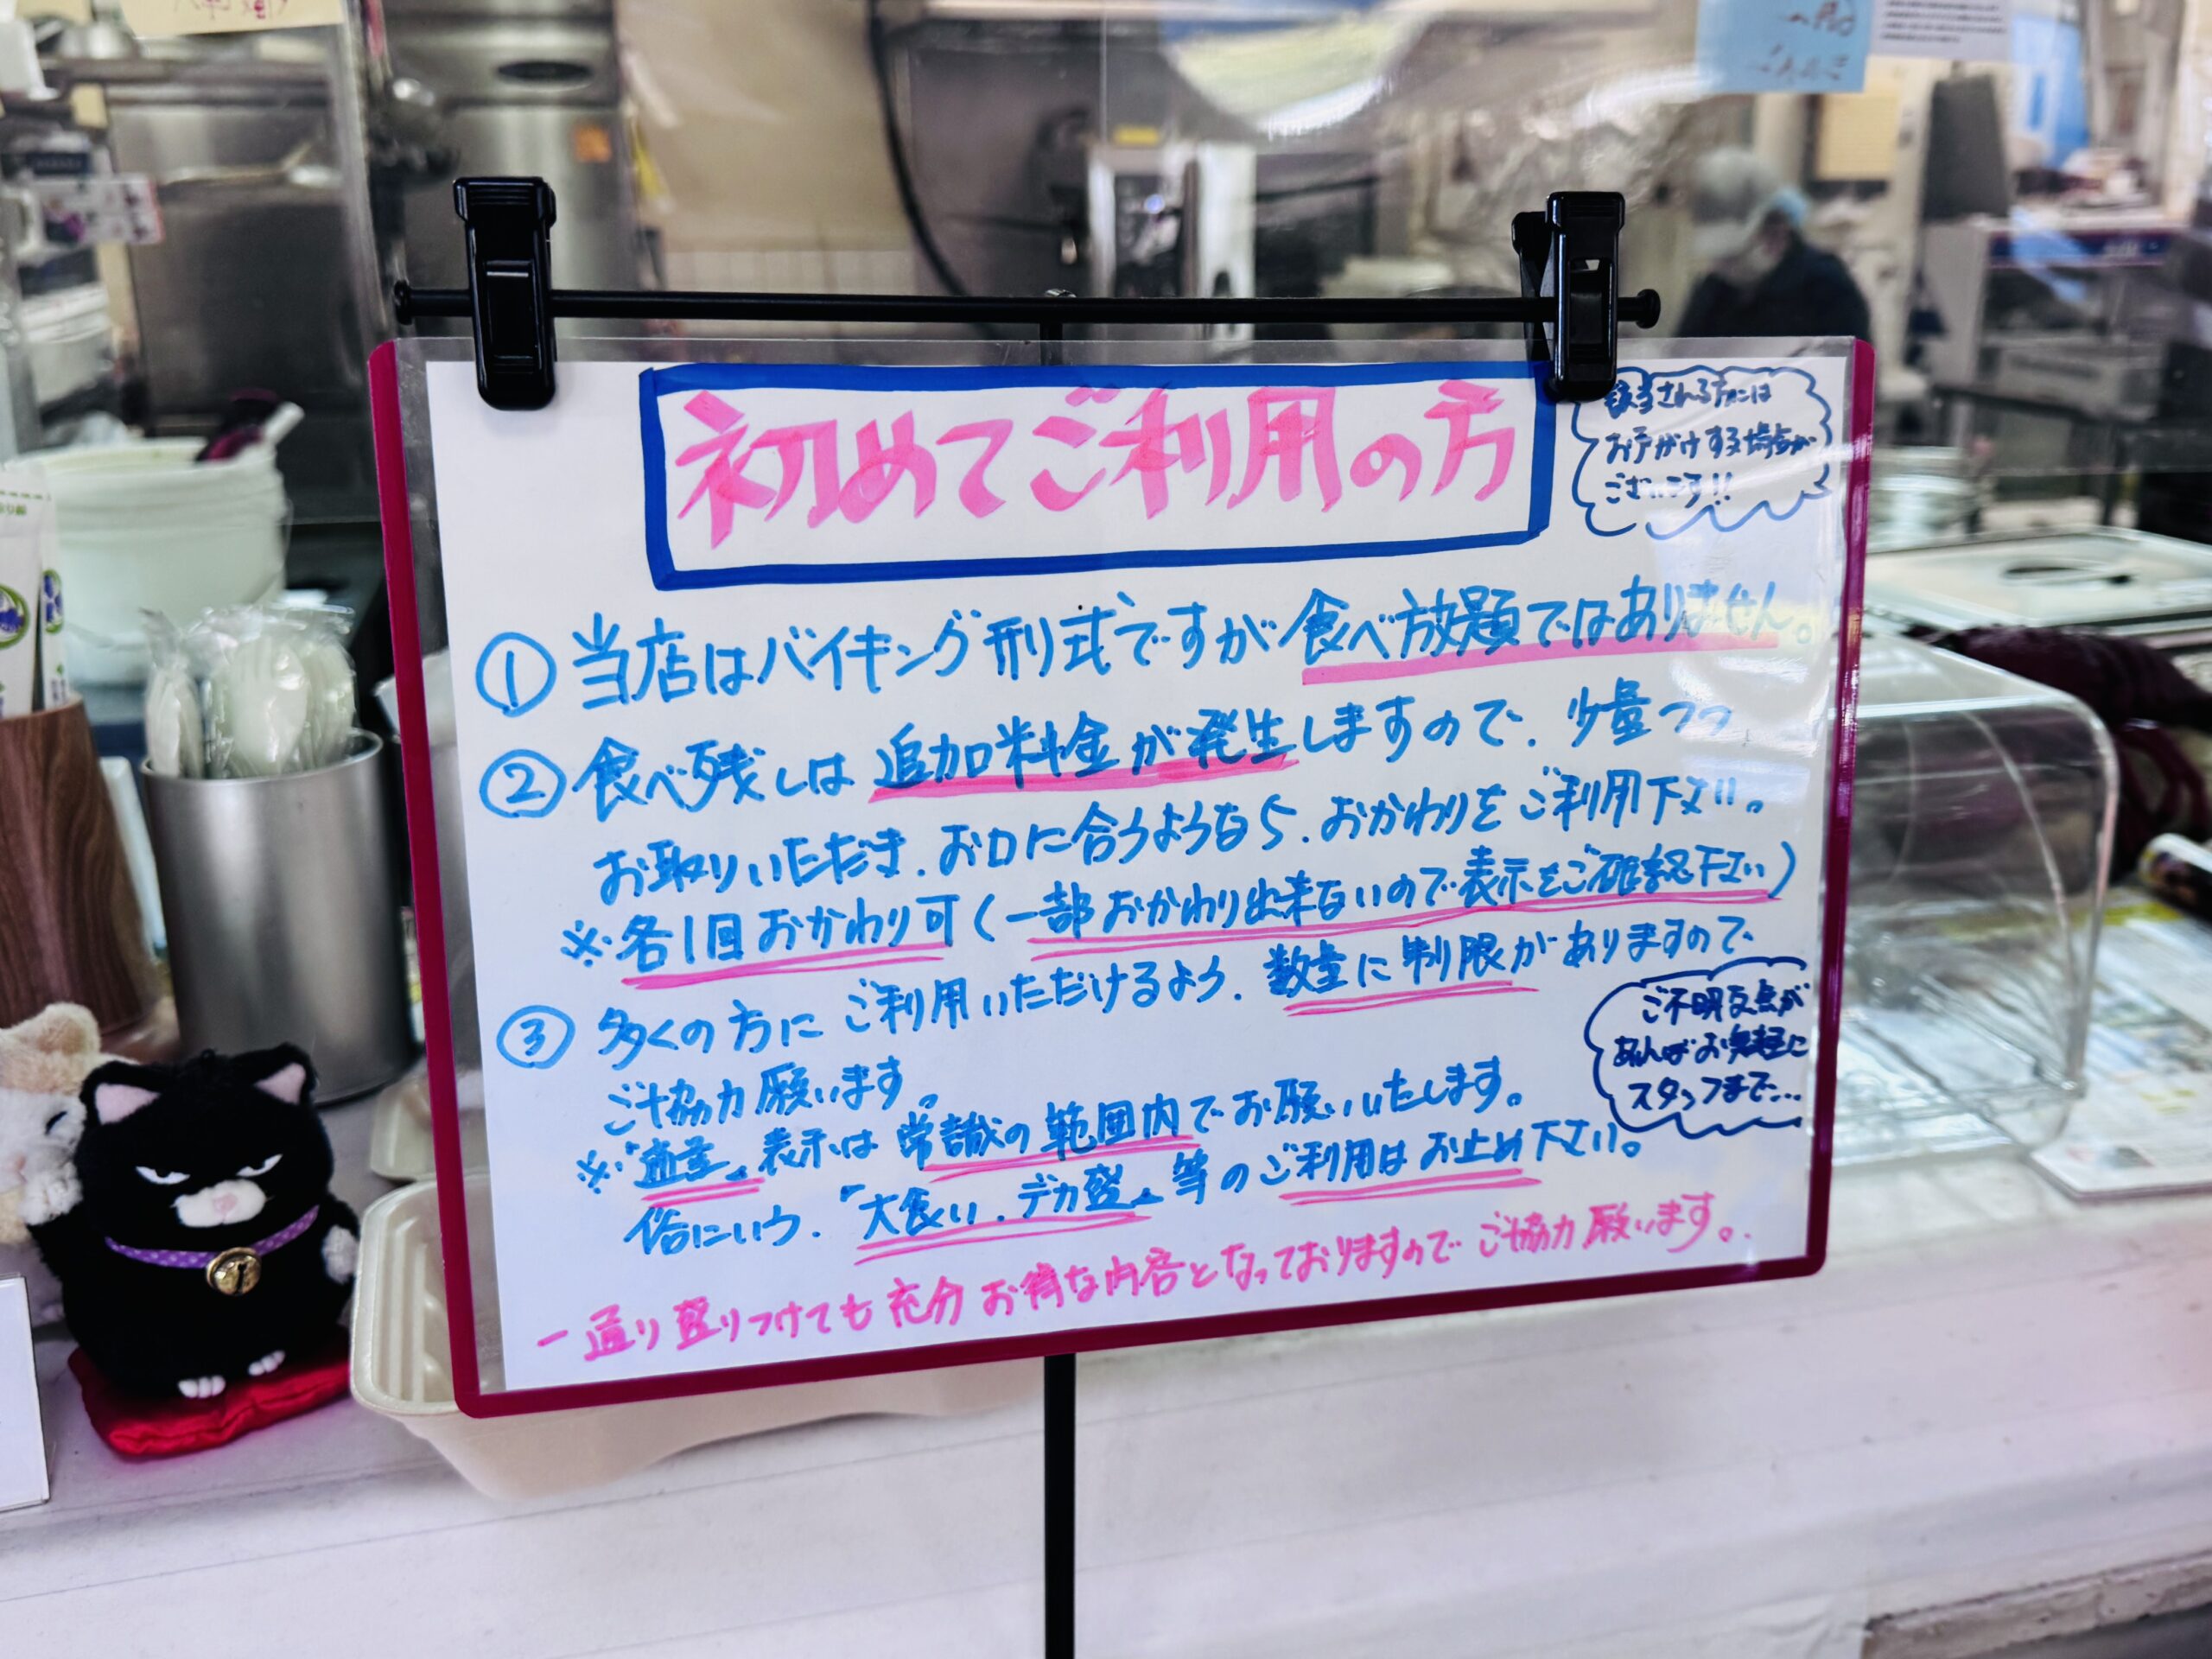 初めてご利用の方
該当される方には
お声がけする場合が
ございます!!
①当店はバイキング形式ですが食べ放題ではありません。
②食べ残しは追加料金が発生しますので、少量づつ
お取りいただき、お口に合うようなら、おかわりをご利用下さい。
※各1回おかわり可(一部おかわり出来ないので表示をご確認下さい)
③多くの方にご利用いただけるよう、数量に制限がありますので
ご協力願います。
※「適量」表示は常識の範囲内でお願いいたします。
俗にいう、「大食い、デカ盛」等のご利用はお止め下さい。
ご不明な点が
あればお気軽に
スタッフまで…
一通り盛りつけても充分お得な内容となっておりますのでご協力願います。